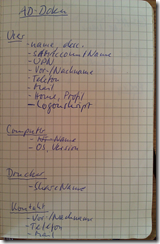 AD-Daten
User
- Name, Desc.
- SAMAccountName
- UPN
- Vor-/Nachname
- Telefon
- Mail
- Home, Profil
- Logonskript
Computer
- NT-Name
- OS, Version
Drucker
- ShareName
Kontakt
- Vor-/Nachname
- Telefon
- Mail